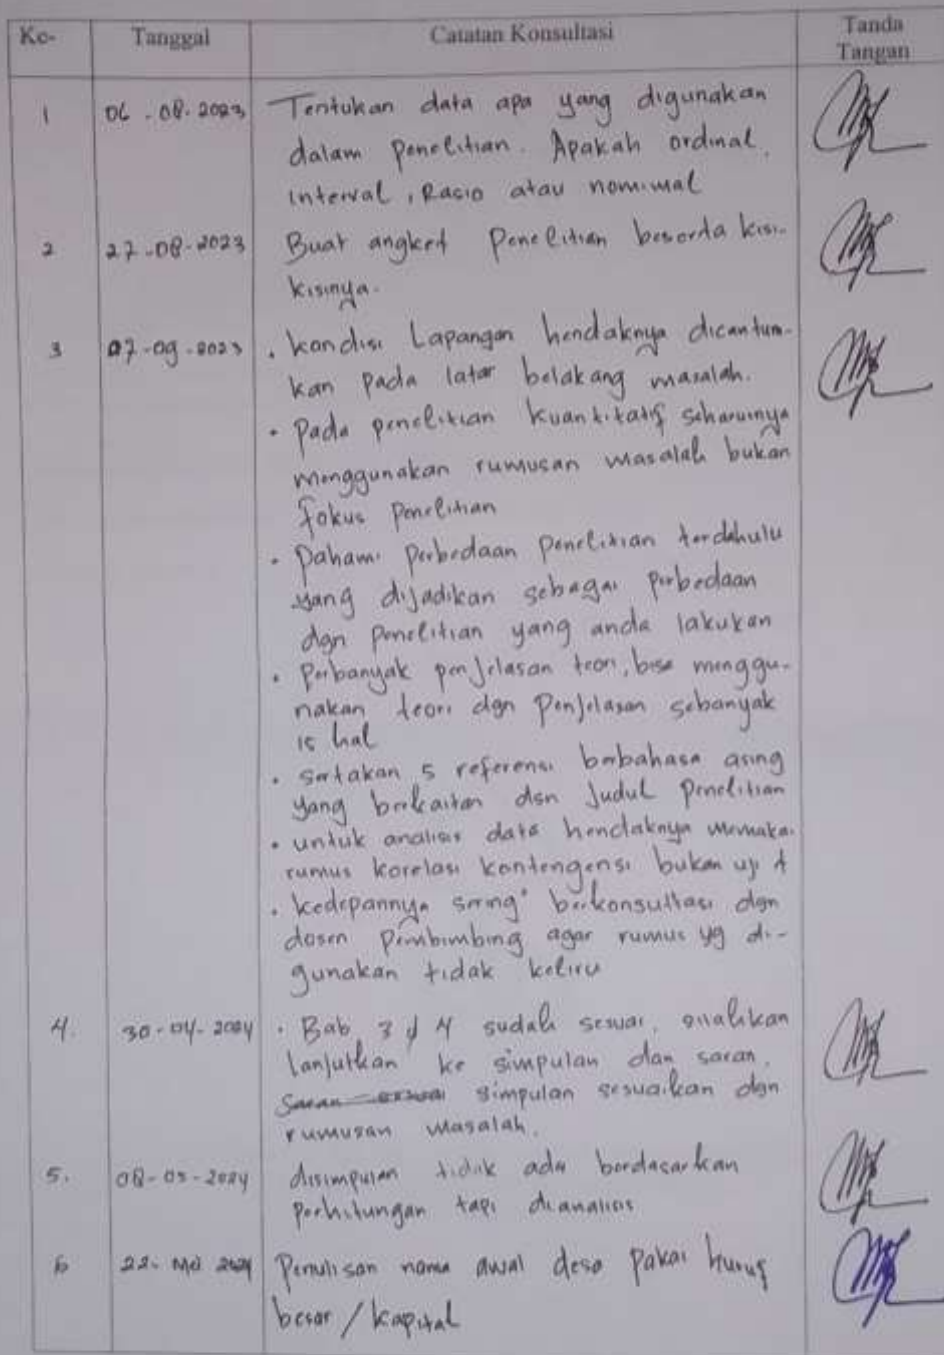 Ke- Tanggal Catatan Konsultasi Tanda
Tangan
1 06 - 08 - 2023 Tentukan data apa yang digunakan
dalam penelitian. Apakah ordinal,
interval, Rasio atau nominal
2 27-08-2023 Buat angket Penelitian beserta kisi-
kisinya.
3 07-09-2023 . kondisi Lapangan hendaknya dicantum-
kan pada latar belakang masalah.
• Pada penelitian kuantitatif seharusnya
menggunakan rumusan masalah bukan
fokus Penelitian
• Pahami perbedaan penelitian terdahulu
yang dijadikan sebagai perbedaan
dgn penelitian yang anda lakukan
• Perbanyak penjelasan teori, bisa menggu-
nakan teori dgn Penjelasan sebanyak
15 hal
• sertakan 5 referensi berbahasa asing
yang berkaitan dgn Judul Penelitian
• untuk analisis data hendaknya memakai
rumus korelasi kontengensi bukan uji t
• kedepannya sering" berkonsultasi dgn
dosen Pembimbing agar rumus yg di-
gunakan tidak keliru
4. 30-04-2024 • Bab 3 & 4 sudah sesuai, silahkan
lanjutkan ke simpulan dan saran.
Saran simpulan sesuaikan dgn
rumusan masalah.
5. 08-05-2024 disimpulan tidak ada berdasarkan
perhitungan tapi dianalisis
6 22- Mei 2024 Penulisan nama awal desa pakai huruf
besar / kapital